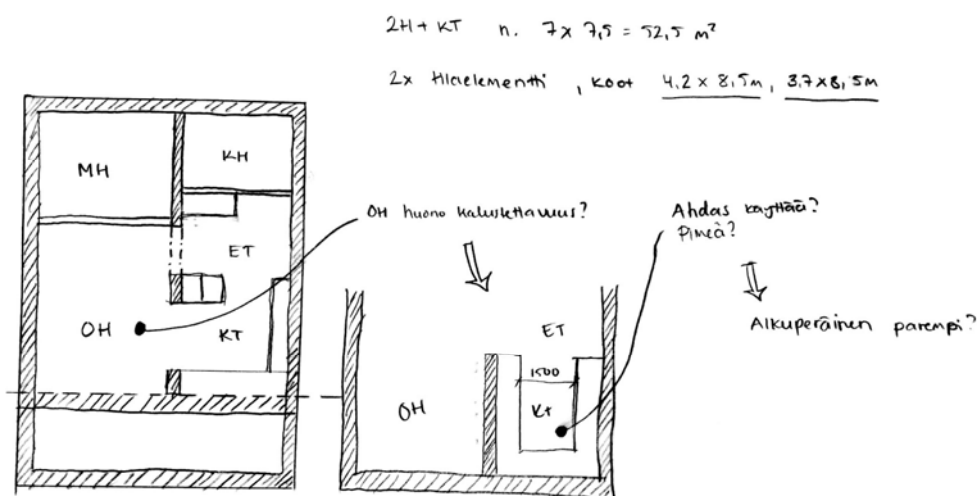 2H + KT n. 7 x 7,5 = 52,5 m²
2x tilaelementti, koot 4.2 x 8,5m, 3.7x8,5m
MH
KH
ET
OH
KT
OH huono kalustettavuus?
Ahdas käyttää?
Pimeä?
Alkuperäinen parempi?
ET
1500
OH
KT